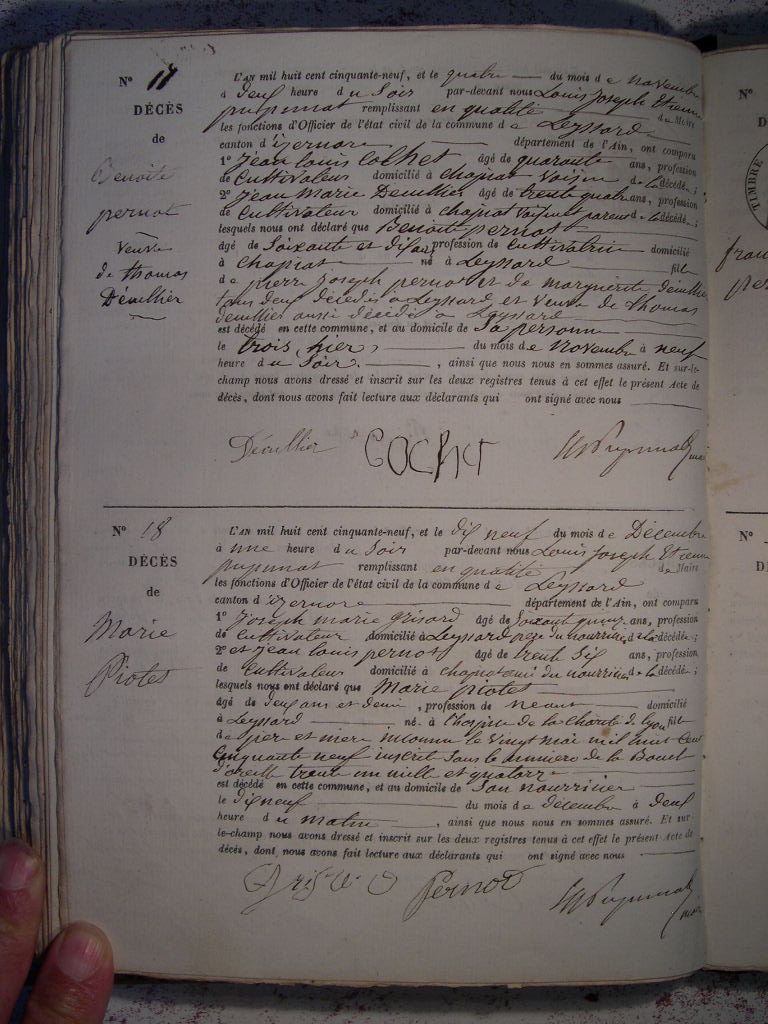 Nº 17
DÉCÈS
de
Benoite
pernot
veuve
de thomas
Décullier
L'AN mil huit cent cinquante-neuf, et le quatre du mois de Novembre
à deux heure du Soir par-devant nous Louis Joseph Etienne
puypunat remplissant en qualité de Maire
les fonctions d'Officier de l'état civil de la commune de Leyssard
canton d'izernore département de l'Ain, ont comparu
1º Jean Louis Cochet âgé de quarante ans, profession
de Cultivateur domicilié à chapiat voisin de la décédée ;
2º Jean Marie Decullier âgé de trente quatre ans, profession
de Cultivateur domicilié à chapiat voisin et parent de la décédée ;
lesquels nous ont déclaré que Benoite pernot
âgé de Soixante et dix ans profession de Cultivatrice domicilié
à Chapiat né à Leyssard fille
de pierre joseph pernot et de marguerite décullier
tous deux décédés à Leyssard et Veuve de thomas
decullier aussi décédé à Leyssard
est décédé en cette commune, et au domicile de Sa personne
le trois, hier, du mois de Novembre à neuf
heure du Soir. , ainsi que nous nous en sommes assuré. Et sur-le-
champ nous avons dressé et inscrit sur les deux registres tenus à cet effet le présent Acte de
décès, dont nous avons fait lecture aux déclarants qui ont signé avec nous
Décullier COCHET Puypunat maire
Nº 18
DÉCÈS
de
Marie
Piotet
L'AN mil huit cent cinquante-neuf, et le dix neuf du mois de Décembre
à une heure du Soir par-devant nous Louis joseph Etienne
puypunat remplissant en qualité de Maire
les fonctions d'Officier de l'état civil de la commune de Leyssard
canton d'izernore département de l'Ain, ont comparu
1º Joseph marie grisard âgé de Soixant quinze ans, profession
de Cultivateur domicilié à Leyssard père du nourricier de la décédée ;
2º et Jean Louis pernot âgé de trente Six ans, profession
de Cultivateur domicilié à chapiat ami du nourricier de la décédée ;
lesquels nous ont déclaré que Marie piotet
âgé de deux ans et demi , profession de neant domicilié
à Leyssard né à l'hospice de la Charité de lyon fille
de père et mère inconnu le vingt mai mil huit Cent
Cinquante neuf inscrit Sous le numero de la Boucl
d'oreille trente un mille et quatorze
est décédé en cette commune, et au domicile de Son nourricier
le dix neuf du mois de décembre à deux
heure du matin , ainsi que nous nous en sommes assuré. Et sur-
le-champ nous avons dressé et inscrit sur les deux registres tenus à cet effet le présent Acte de
décès, dont nous avons fait lecture aux déclarants qui ont signé avec nous
Pernot Puypunat maire
Nº
D
TIMBRE
Nº
D